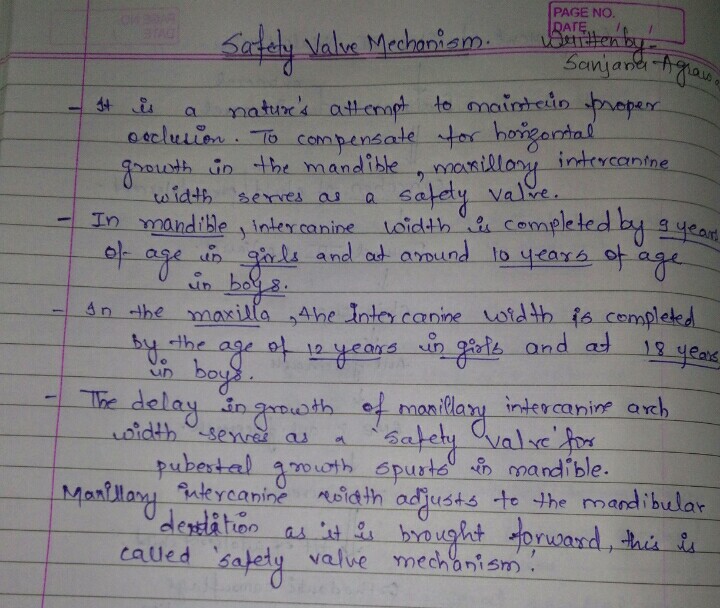 PAGE NO.
DATE
Safety Valve Mechanism.
Written by-
Sanjana Agraw
- It is a nature's attempt to maintain proper
occlusion. To compensate for horizontal
growth in the mandible, maxillary intercanine
width serves as a safety valve.
- In mandible, intercanine width is completed by 9 years
of age in girls and at around 10 years of age
in boys.
- In the maxilla, the Intercanine width is completed
by the age of 12 years in girls and at 18 years
in boys.
- The delay in growth of maxillary intercanine arch
width serves as a 'safety valve' for
pubertal growth spurts in mandible.
Maxillary intercanine width adjusts to the mandibular
dentition as it is brought forward, this is
called 'safety valve mechanism'.